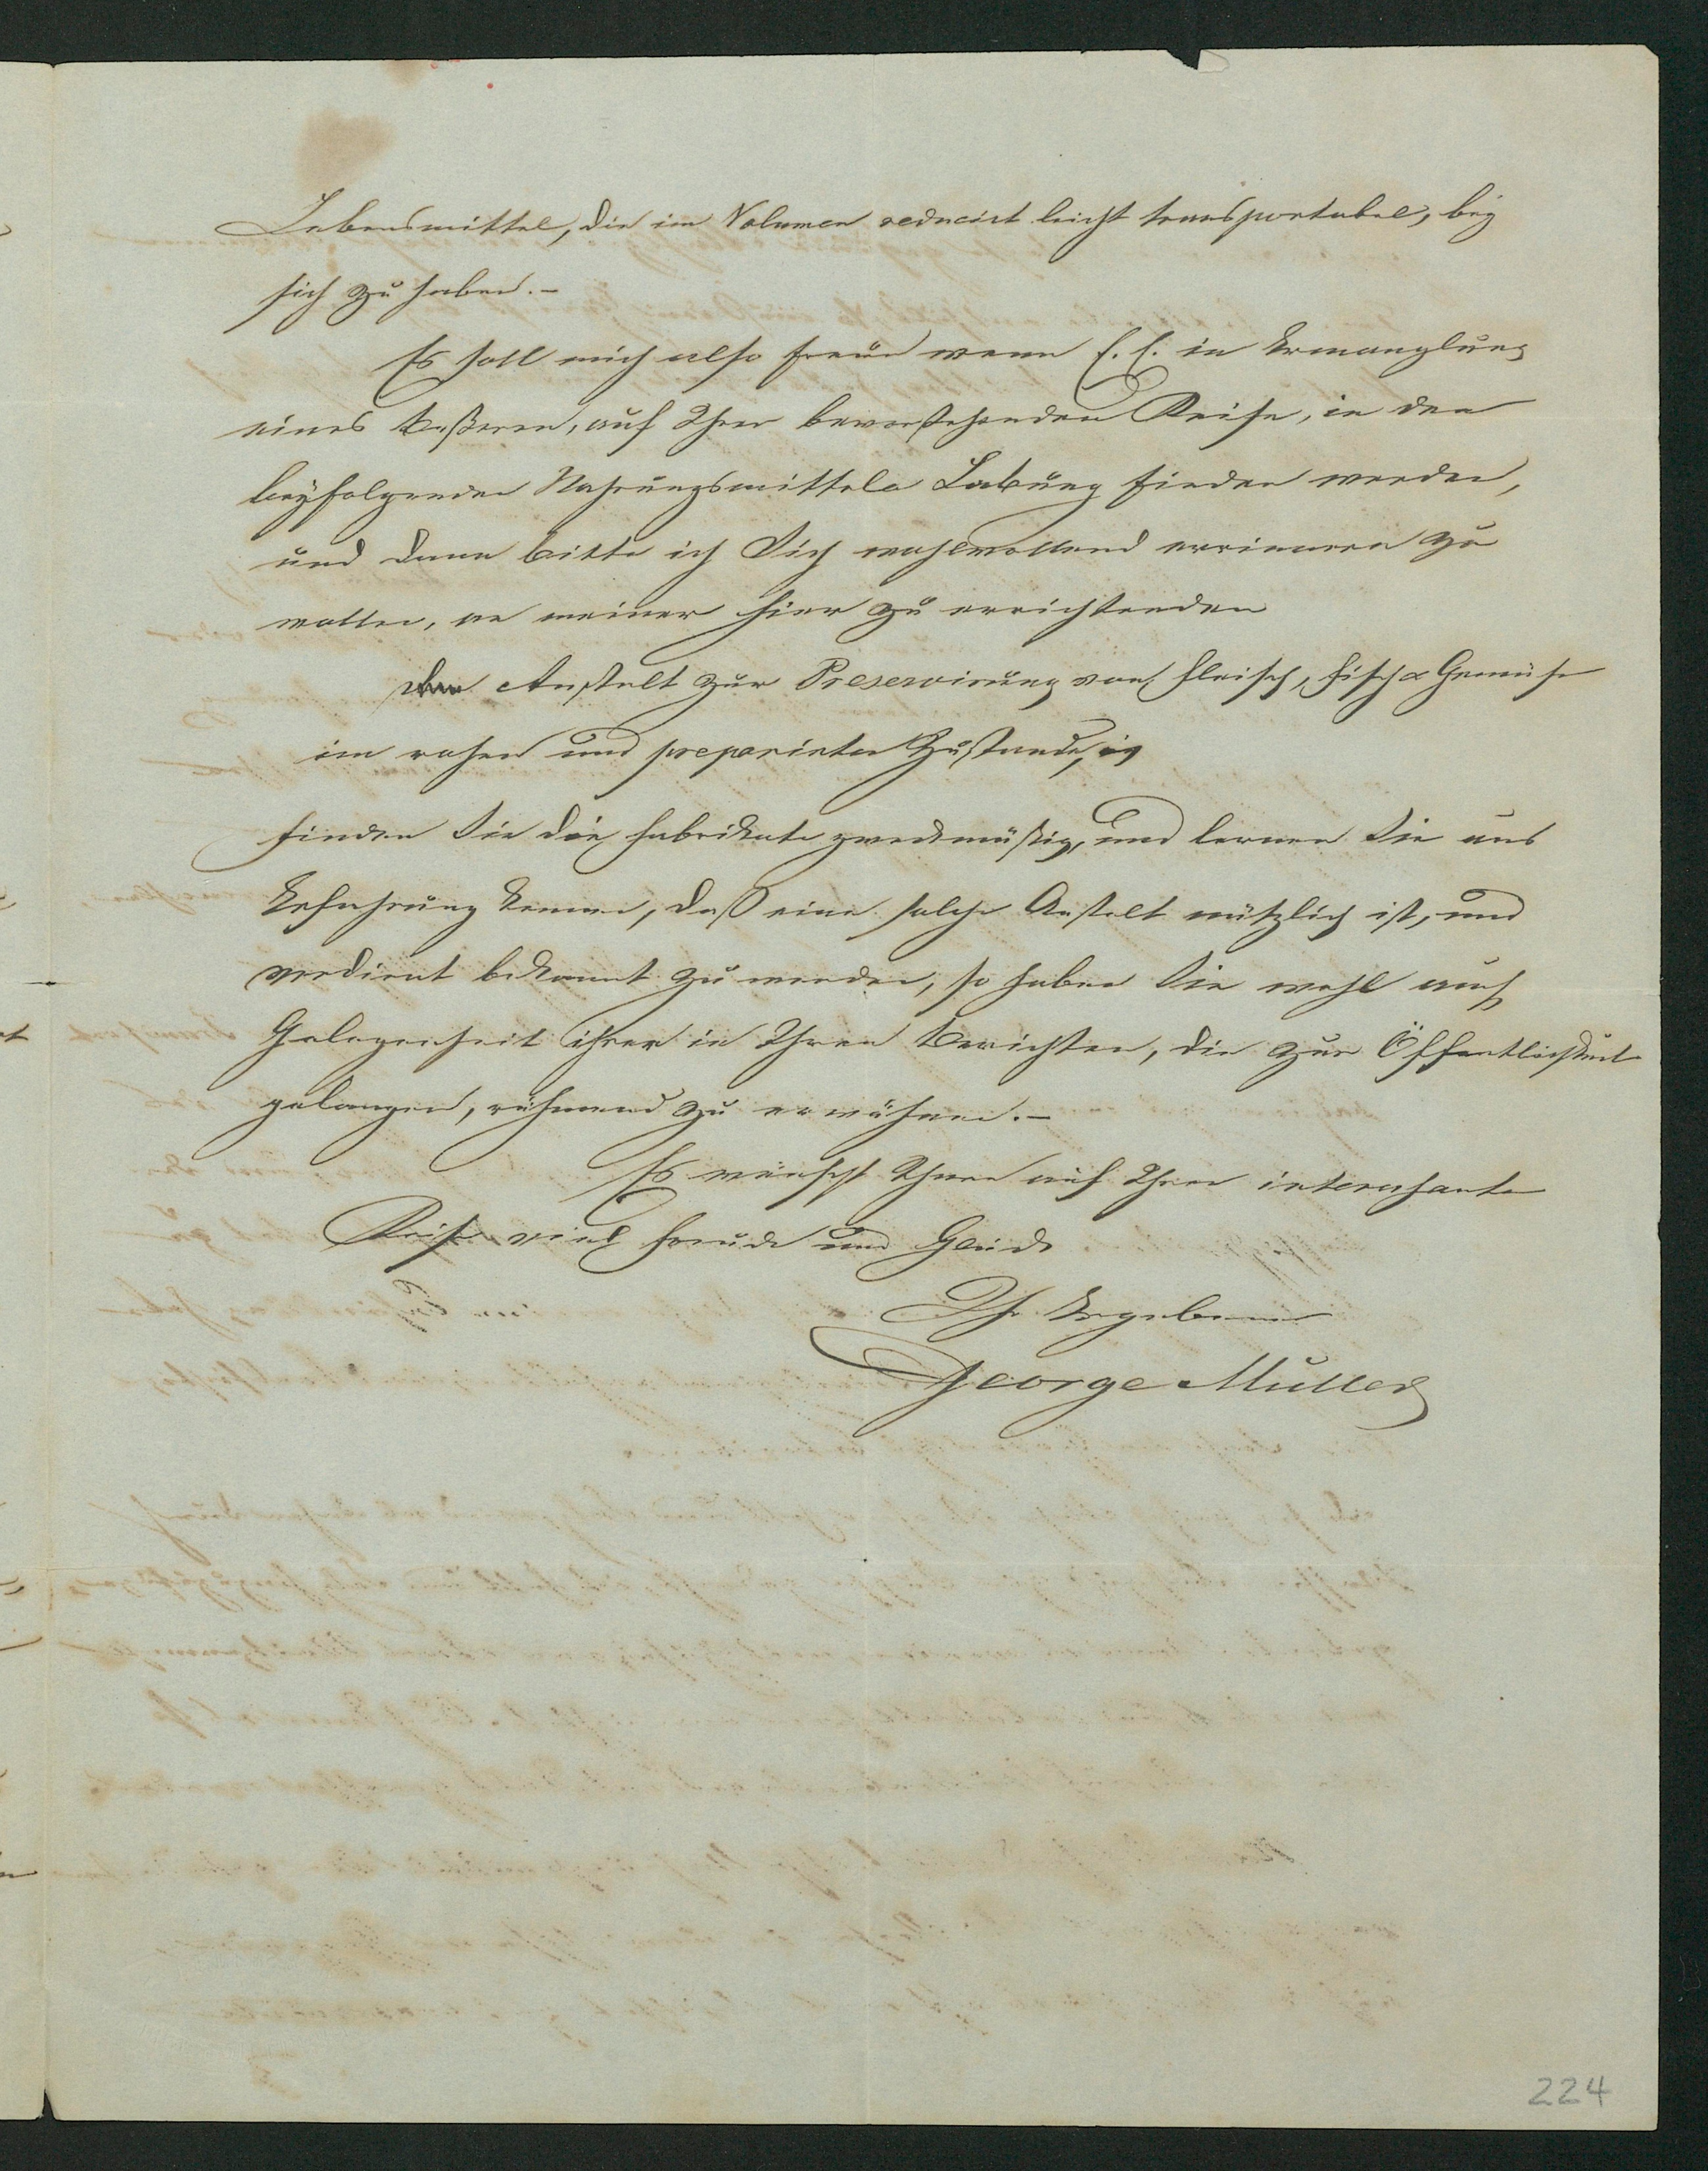 Lebensmittel, die im Volumen reducirt leicht transportabel, bey
sich zu haben.-
Es soll mich also freün wenn E. E. in Ermanglung
eines Beßeren, auf Ihrer bevorstehenden Reise, in den
beyfolgenden Nahrungsmitteln Labung finden werden,
und dann bitte ich Sich wohlwollend errinnern zu
wollen, an meiner hier zu errichtenden
Anstalt zur Preservirung von Fleisch, Fisch & Gemüse
im rohen und preparirten Zustande,
finden Sie die Fabrikate zweckmäßig, und lernen Sie aus
Erfahrung kennen, daß eine solche Anstalt nützlich ist, und
verdient bekannt zu werden, so haben Sie wohl auch
Gelegenheit ihrer in Ihren Berichten, die zur Öffentlichkeit
gelangen, rühmend zu erwähnen.-
Es wünscht Ihnen auf Ihrer interesanten
Reise viel Freude und Glück
Ihr Ergebener
George Müller
224